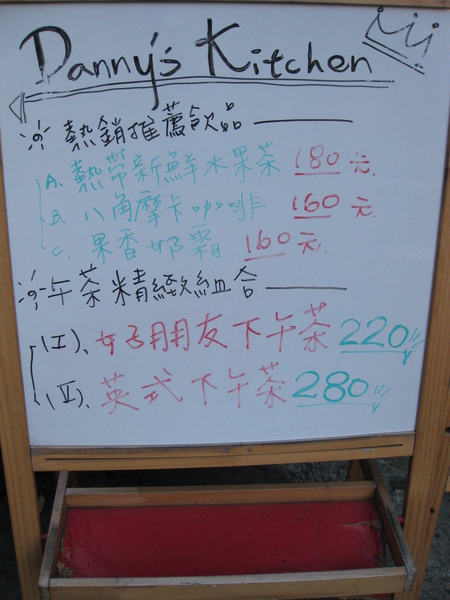 Danny's Kitchen
熱銷推薦飲品
A. 熱帶新鮮水果茶 180元
B. 八角摩卡咖啡 160元
C. 果香奶霜 160元
午茶精緻組合
(I)、好朋友下午茶 220
(II)、英式下午茶 280